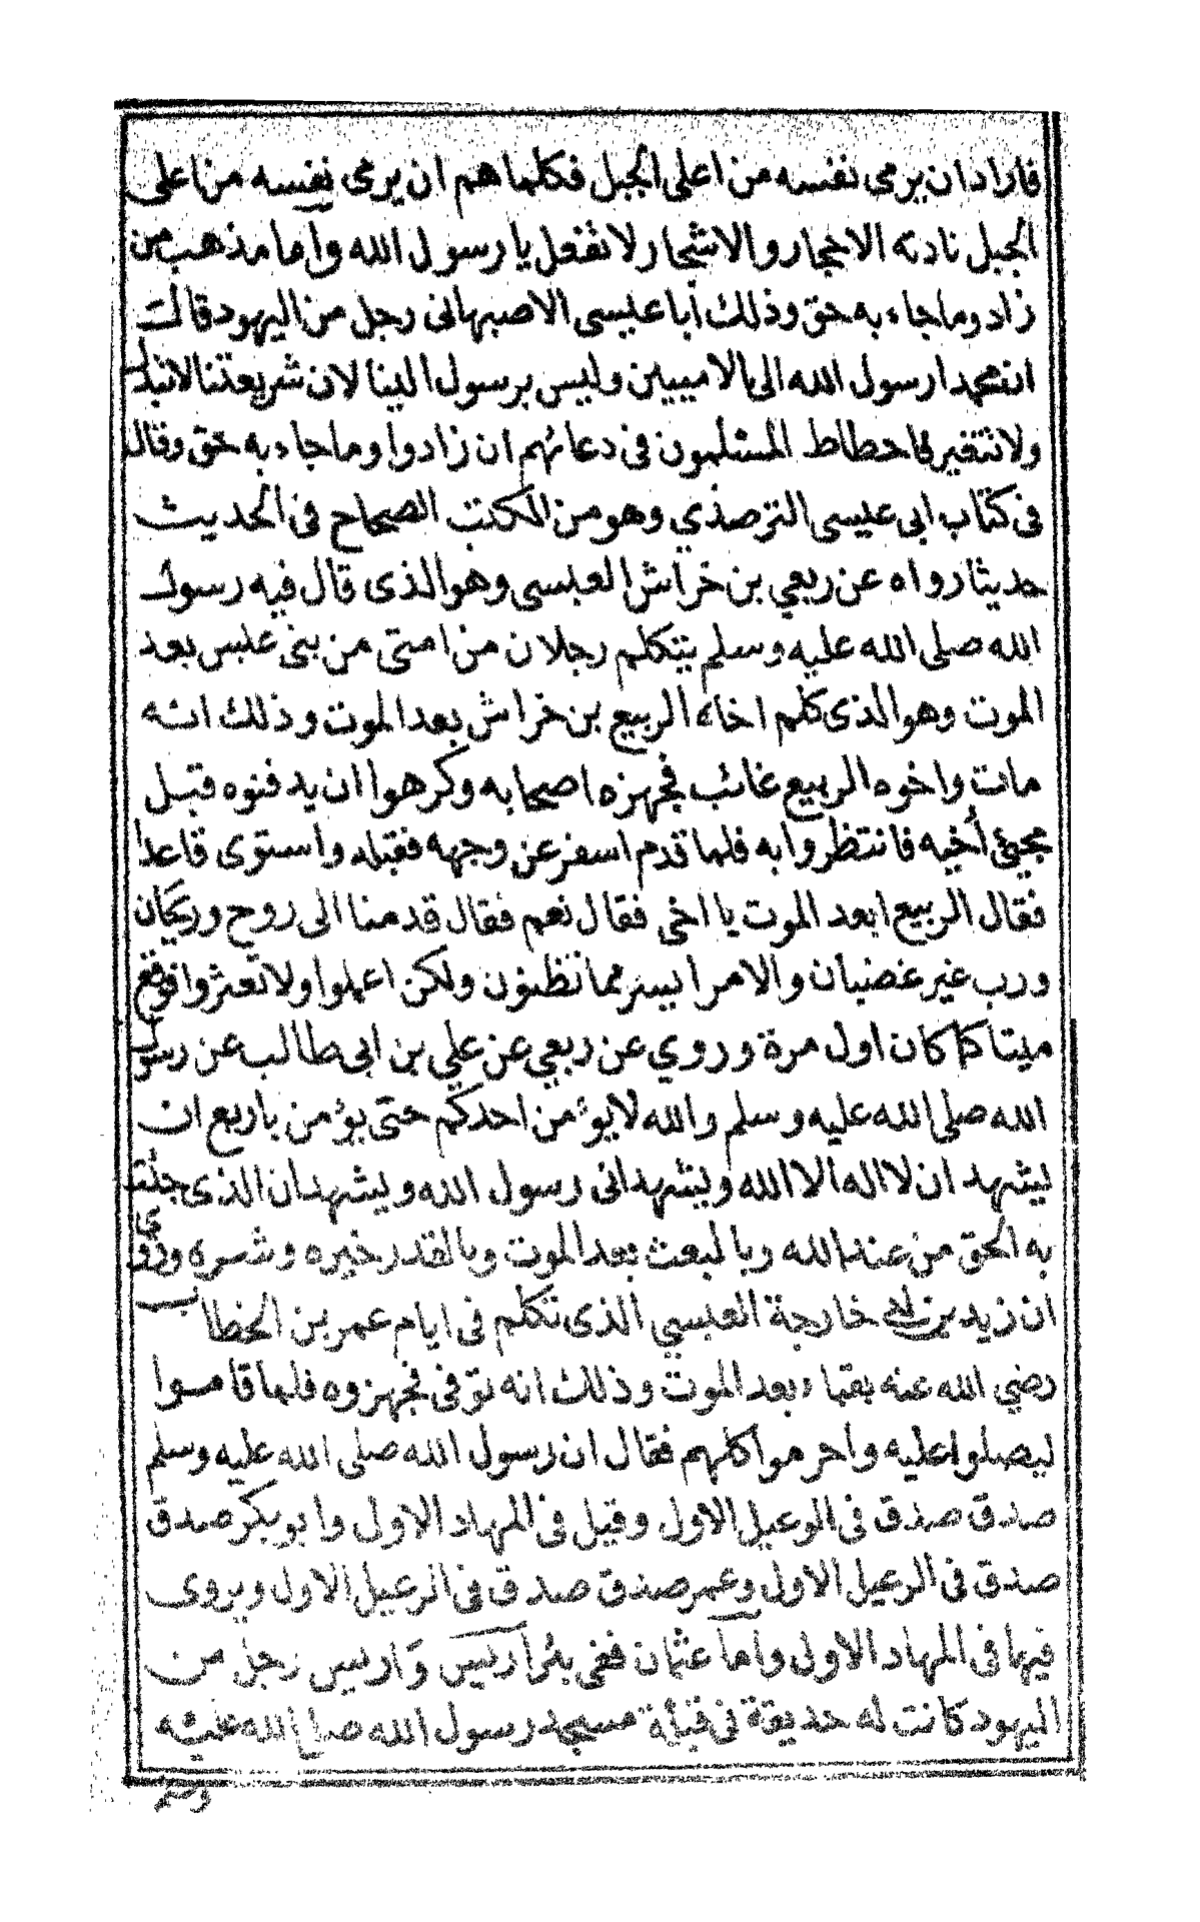 فاراد ان يرمى نفسه من اعلى الجبل فكلما هم ان يرمى نفسه من اعلى
الجبل نادته الاحجار والاشجار لا تفعل يا رسول الله واما مذهب من
زاد وما جاء به حق وذلك أبا عيسى الاصبهانى رجل من اليهود قالت
ان محمدا رسول الله الى الاميين وليس برسول الينا لان شريعتنا لا تبدل
ولا تتغير فاحطاط المسلمون فى دعائهم ان زادوا وما جاء به حق وقال
فى كتاب ابى عيسى الترمذي وهو من الكتب الصحاح فى الحديث
حديثا رواه عن ربعي بن خراش العبسى وهو الذى قال فيه رسول
الله صلى الله عليه وسلم يتكلم رجلان من امتى من بنى عبس بعد
الموت وهو الذى كلم اخاه الربيع بن خراش بعد الموت وذلك انه
مات واخوه الربيع غائب فجهزه اصحابه وكرهوا ان يدفنوه قبل
مجيئ أخيه فانتظروا به فلما قدم اسفر عن وجهه فقبله واستوى قاعدا
فقال الربيع ابعد الموت يا اخى فقال نعم فقال قدمنا الى روح وريحان
ورب غير غضبان والامر ايسر مما تظنون ولكن اعملوا ولا تعثروا فوقع
ميتا كما كان اول مرة وروي عن ربعي عن علي بن ابى طالب عن رسول
الله صلى الله عليه وسلم والله لا يؤمن احدكم حتى يؤمن باربع ان
يشهد ان لا اله الا الله ويشهد انى رسول الله ويشهد ان الذى جئت
به الحق من عند الله وبالبعث بعد الموت وبالقدر خيره وشره وروى
ان زيد بن خارجة العبسي الذى تكلم فى ايام عمر بن الخطاب
رضي الله عنه بقباء بعد الموت وذلك انه توفى فجهزوه فلما قاموا
ليصلوا عليه واحرموا كلهم فقال ان رسول الله صلى الله عليه وسلم
صدق صدق فى الوعيل الاول وقيل فى المهاد الاول وابو بكر صدق
صدق فى الرعيل الاول وعمر صدق صدق فى الرعيل الاول ويروى
فيها فى المهاد الاول واما عثمان ففى بئر أريس وأريس رجل من
اليهود كانت له حديقة فى قبلة مسجد رسول الله صلى الله عليه
وسلم